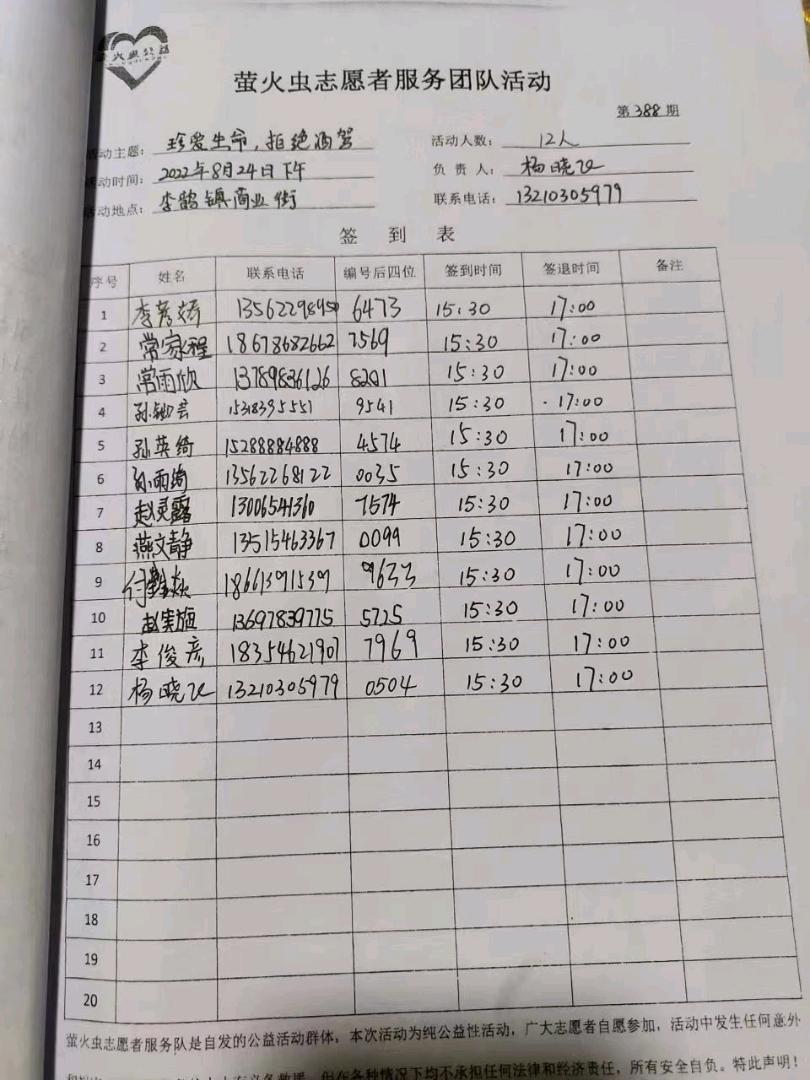 萤火虫公益
萤火虫志愿者服务团队活动
第 388 期
活动主题: 珍爱生命,拒绝酒驾 活动人数: 12人
活动时间: 2022年8月24日下午 负 责 人: 杨晓
活动地点: 李鹊镇商业街 联系电话: 13210305979
签 到 表
序号 姓名 联系电话 编号后四位 签到时间 签退时间 备注
1 李 6473 15:30 17:00
2 常家程 18678682662 7569 15:30 17:00
3 常雨欣 13789836126 8201 15:30 17:00
4 孙 15318395551 9541 15:30 17:00
5 孙英绮 15288884888 4574 15:30 17:00
6 孙雨绮 13562268122 0035 15:30 17:00
7 赵灵露 13006541360 7574 15:30 17:00
8 燕文静 13515463367 0099 15:30 17:00
9 付 18661391539 9633 15:30 17:00
10 赵 13697839775 5725 15:30 17:00
11 李俊彦 18354621907 7969 15:30 17:00
12 杨晓 13210305979 0504 15:30 17:00
13
14
15
16
17
18
19
20
萤火虫志愿者服务队是自发的公益活动群体,本次活动为纯公益性活动,广大志愿者自愿参加,活动中发生任何意外
但在各种情况下均不承担任何法律和经济责任,所有安全自负。特此声明!